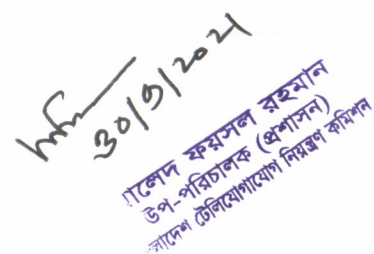 ৩০/৩/২০২১
ালেদ ফয়সল রহমান
উপ-পরিচালক (প্রশাসন)
লাদেশ টেলিযোগাযোগ নিয়ন্ত্রণ কমিশন